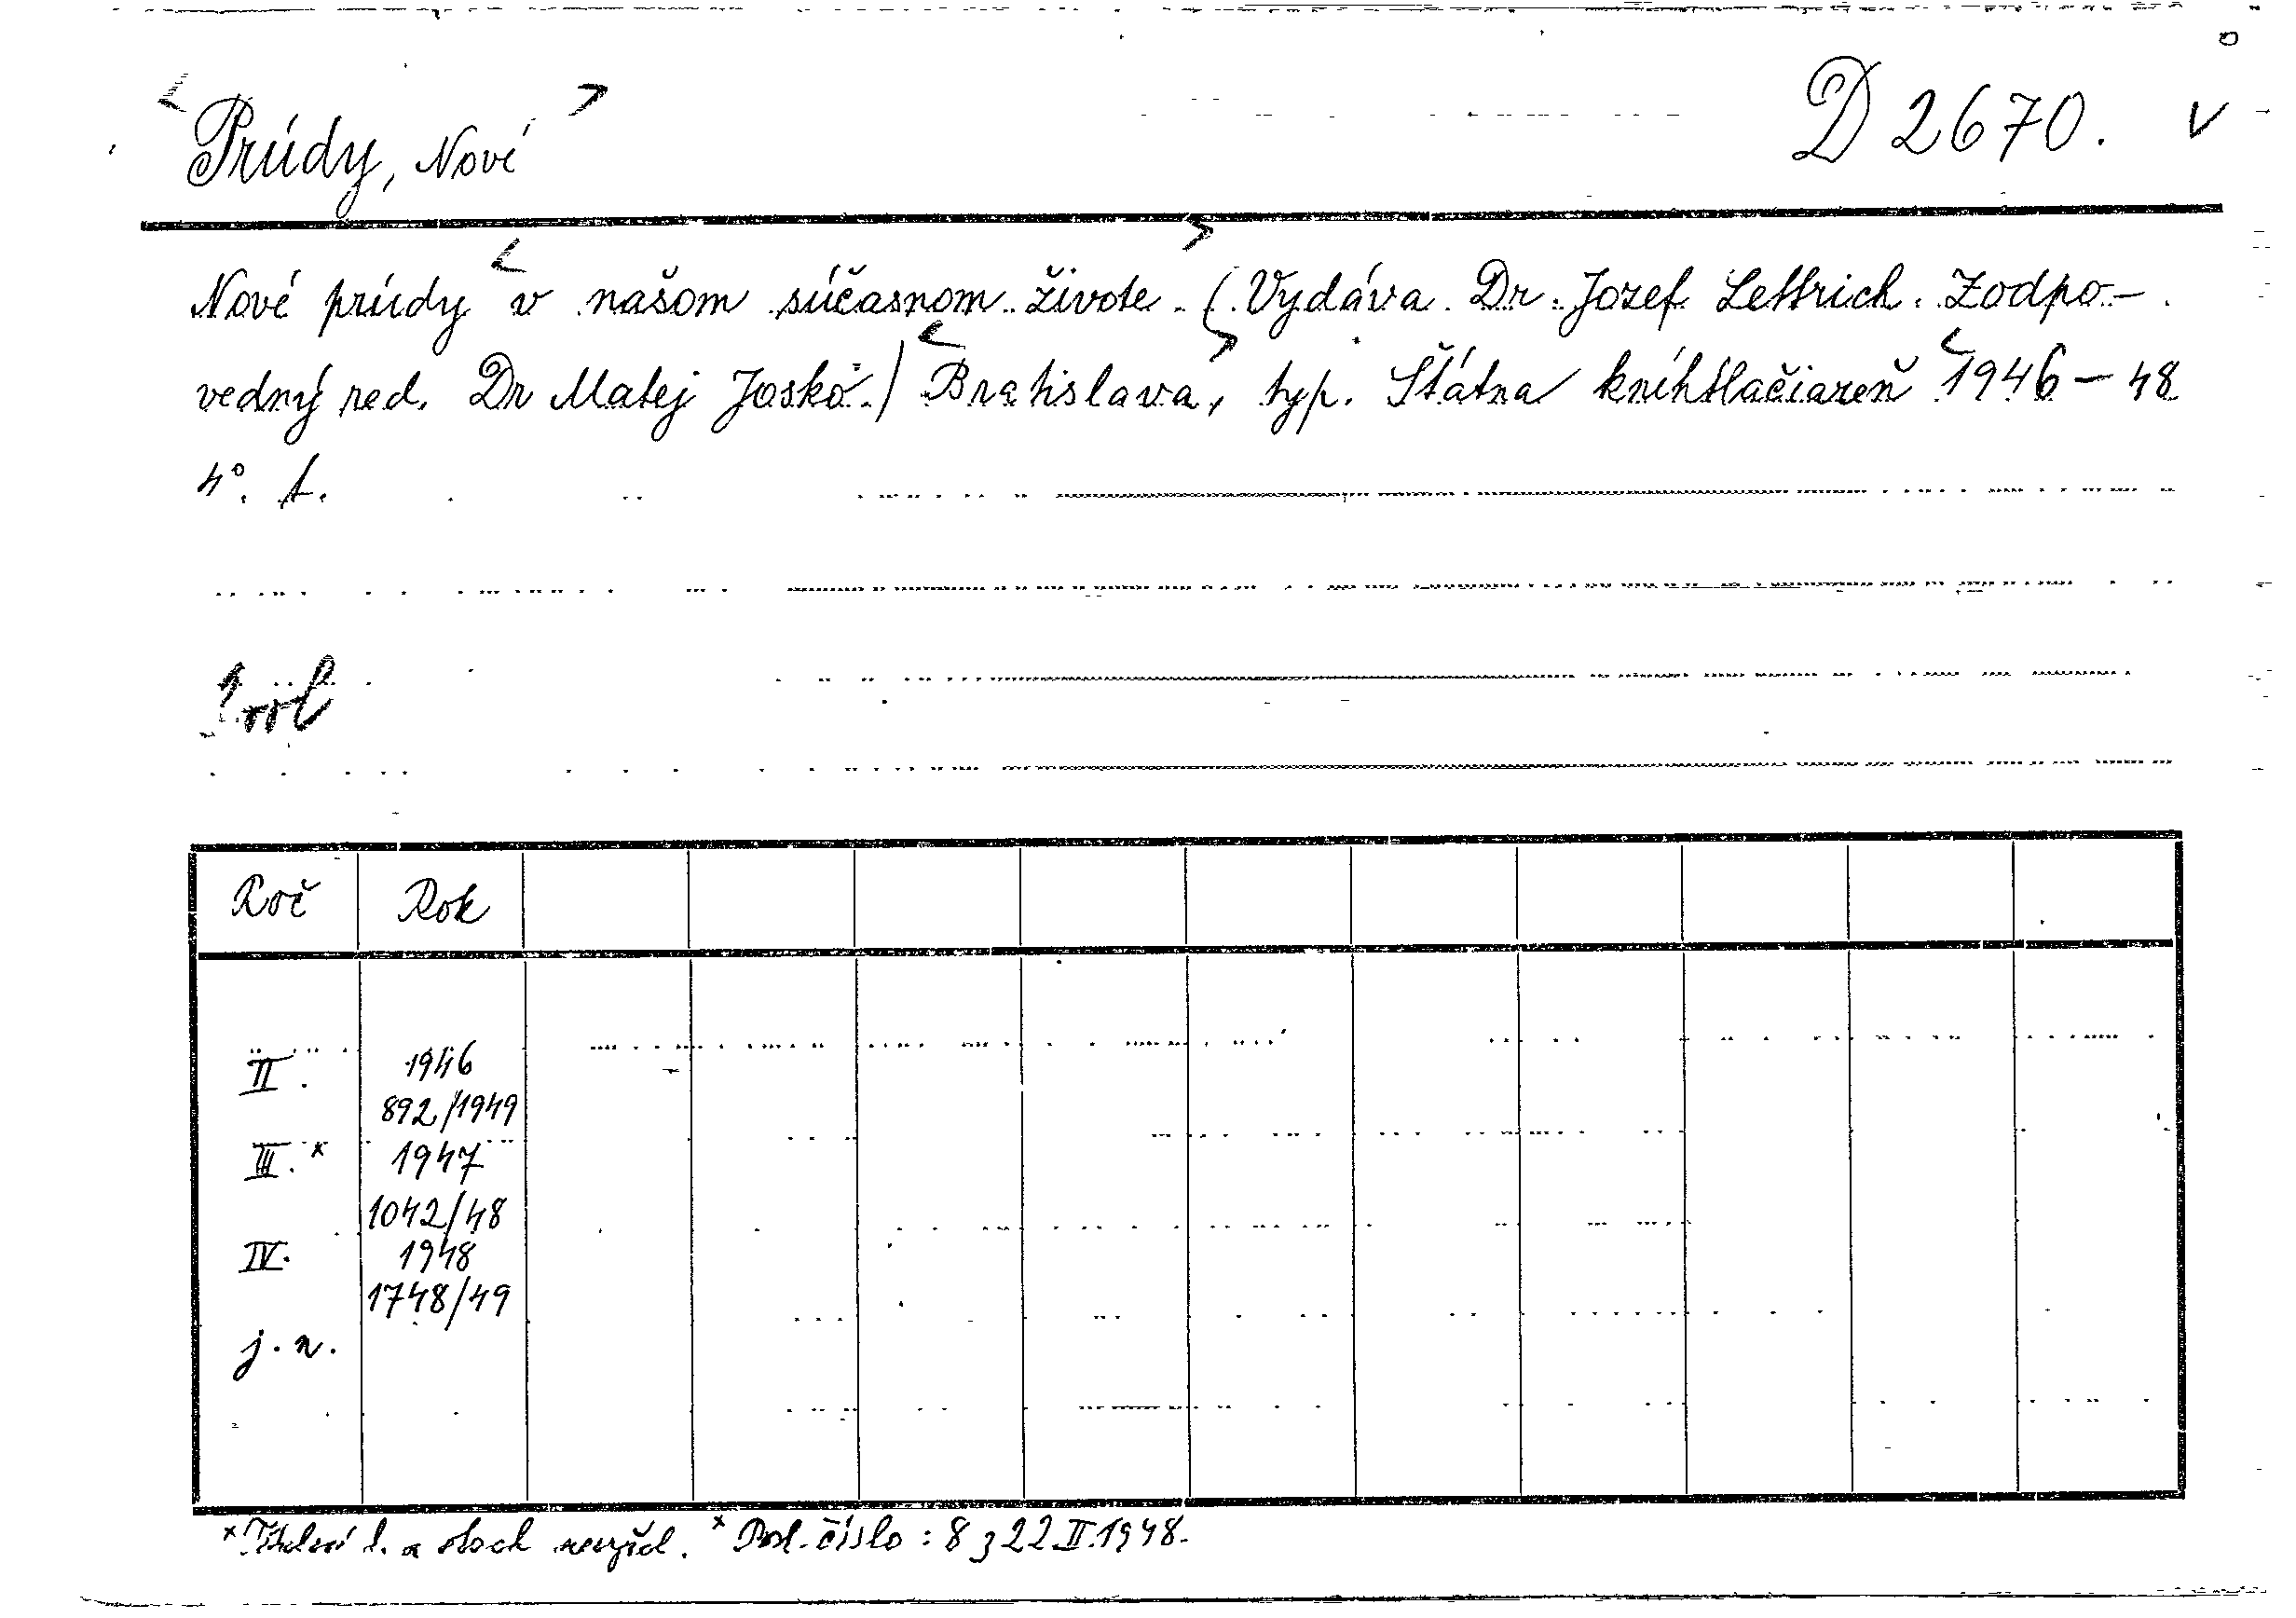 < Prúdy, Nové > D 2670. V
Nové prúdy < v našom súčasnom živote. > (Vydáva Dr. Jozef Lettrich. Zodpo-
vedný red. Dr Matej Josko.) < Bratislava, > typ. Štátna kníhtlačiareň < 1946-48
4°. f.
Roč Rok
II. 1946
892/1949
III.ˣ 1947
1042/48
IV. 1948
1748/49
j. n.
ˣ Titulní l. a obsah nevyšel. ˣ Posl. číslo: 8 z 22.II.1948.